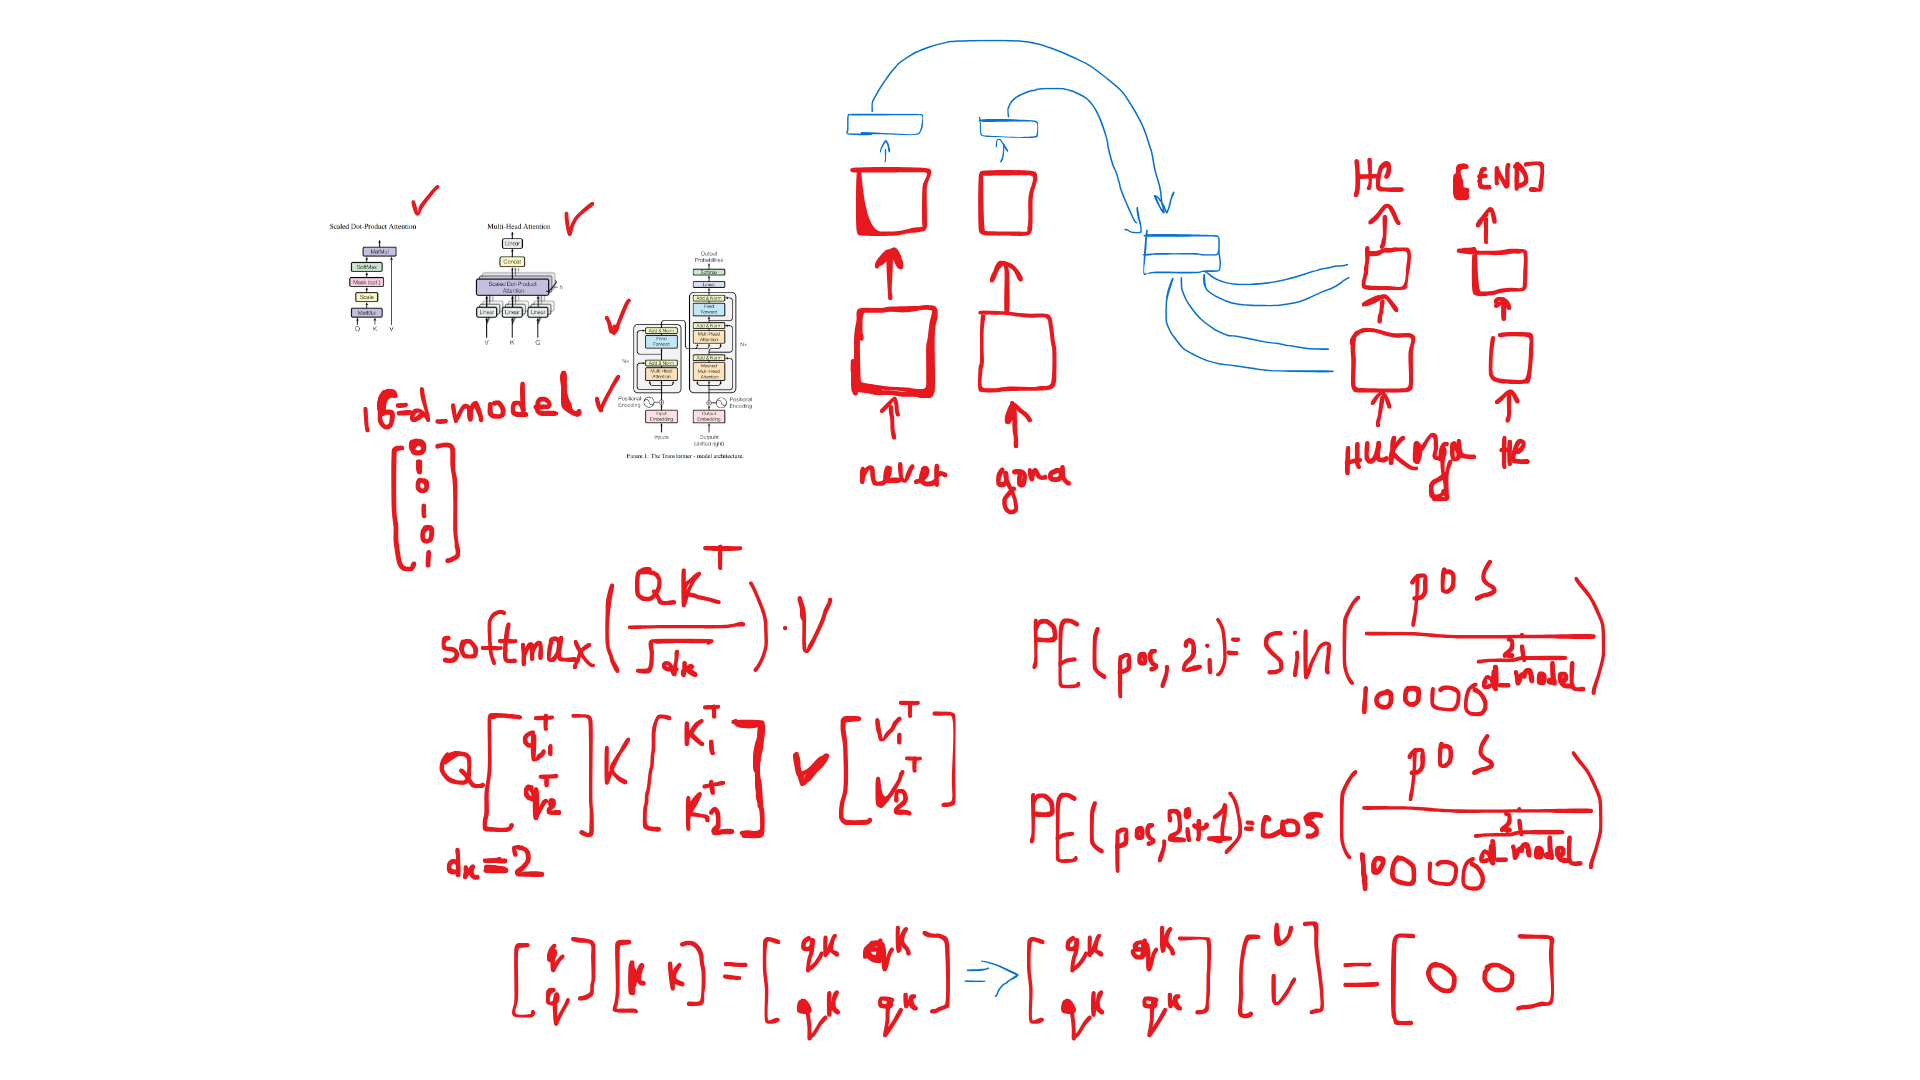 Scaled Dot-Product Attention
MatMul
SoftMax
Mask (opt.)
Scale
MatMul
Q K V
Multi-Head Attention
Linear
Concat
Scaled Dot-Product
Attention
h
Linear Linear Linear
V K Q
Output
Probabilities
Softmax
Linear
Add & Norm
Feed
Forward
Add & Norm
Multi-Head
Attention
Add & Norm
Masked
Multi-Head
Attention
Nx
Add & Norm
Feed
Forward
Nx
Add & Norm
Multi-Head
Attention
Positional
Encoding
Positional
Encoding
Input
Embedding
Output
Embedding
Inputs
Outputs
(shifted right)
Figure 1: The Transformer - model architecture.
16=d_model
0
1
0
1
0
1
never gona
не [END]
не
softmax(QK^T/√dk)·V
Q[q1^T q2^T] K[K1^T K2^T] V[V1^T V2^T]
dk=2
PE(pos, 2i)= sin(pos/10000^(2i/d_model))
PE(pos,2i+1)=cos(pos/10000^(2i/d_model))
[q q][K K] = [qK qK qK qK] ⇒ [qK qK qK qK][V V] = [0 0]